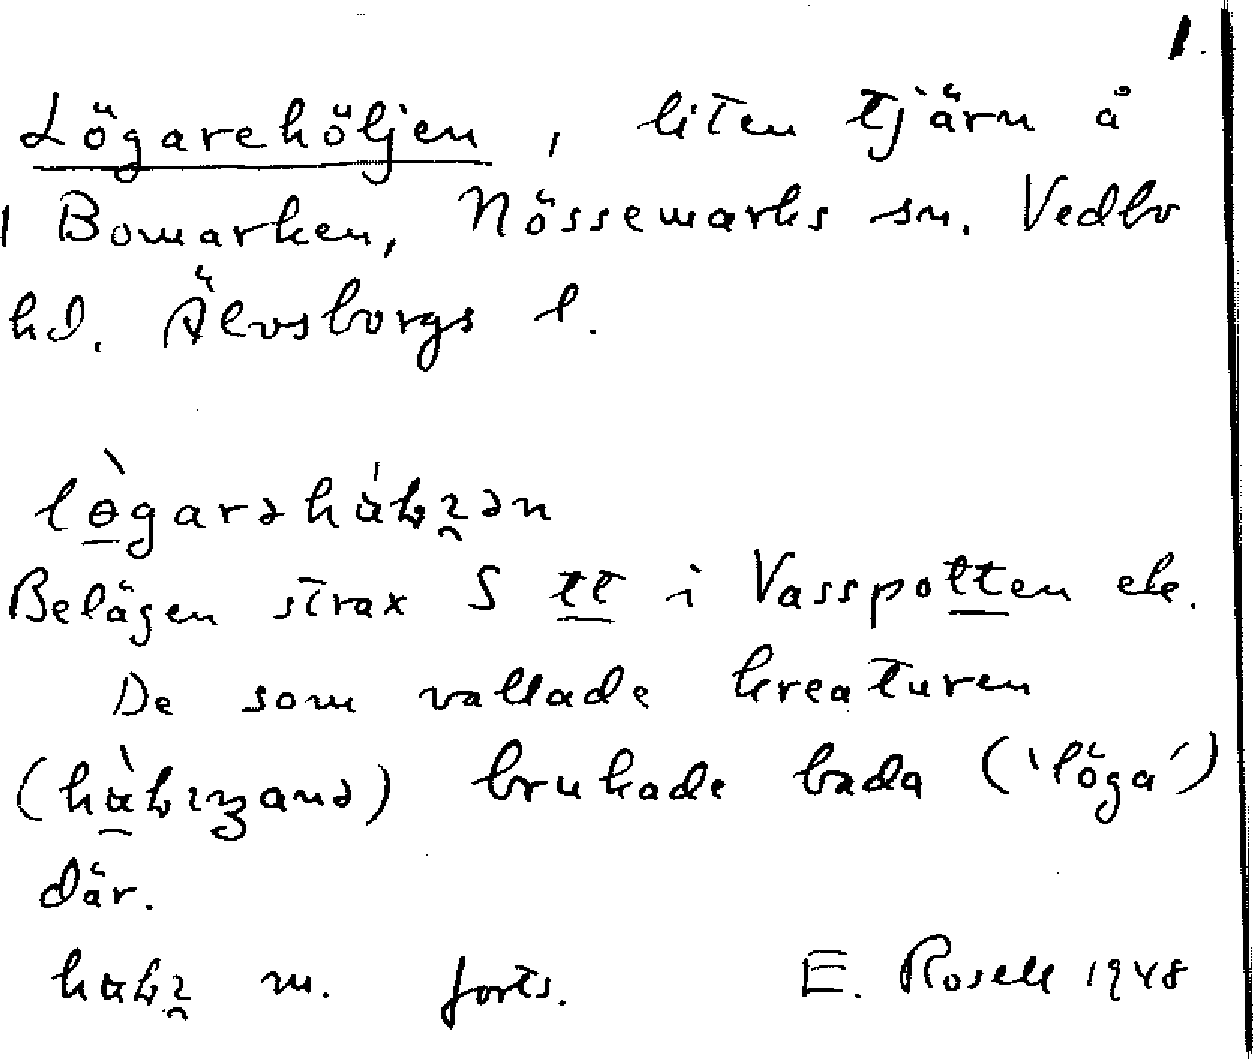 1.
Lögarehöljen, liten tjärn å
1 Bomarken, Nössemarks sn. Vedbo
hd. Älvsborgs l.
Belägen strax S tt i Vasspotten ele.
De som vallade kreaturen
brukade bada ('löga')
där.
m. forts. E. Rosell 1948